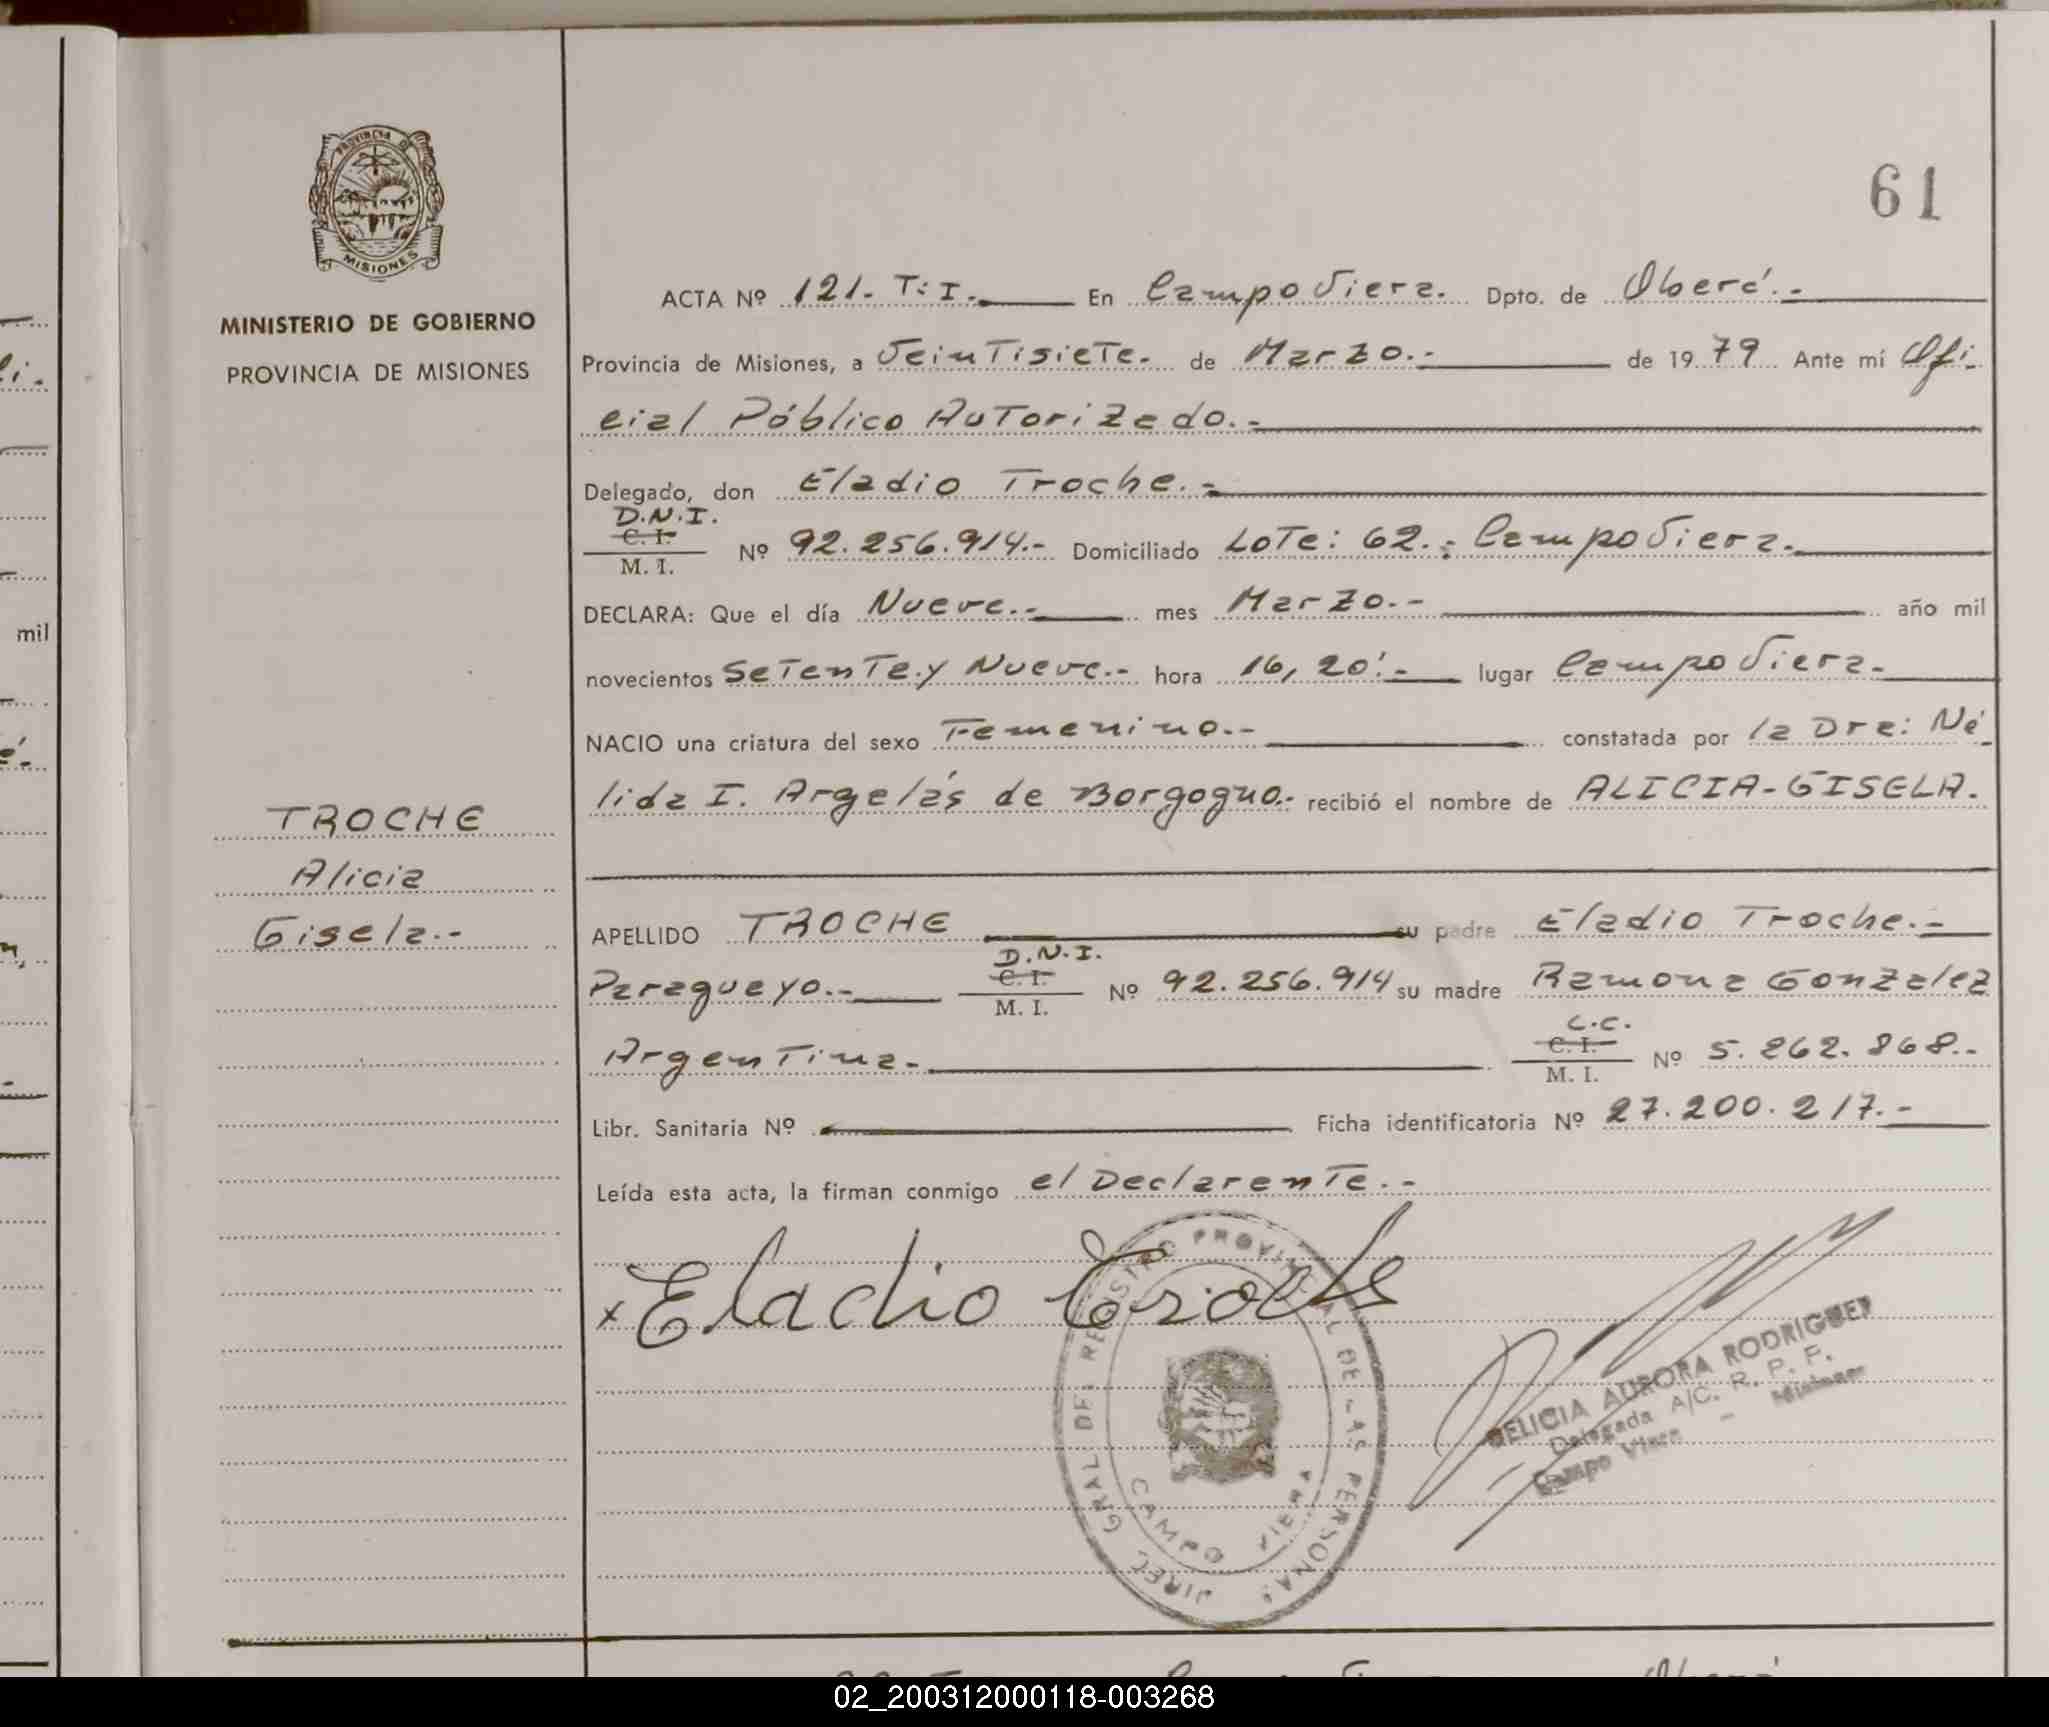 PROVINCIA DE
MISIONES
MINISTERIO DE GOBIERNO
PROVINCIA DE MISIONES
TROCHE
Alicia
Gisela.-
61
ACTA Nº 121. T: I. En Campo Viera. Dpto. de Oberá.-
Provincia de Misiones, a Veintisiete. de Marzo.- de 1979 Ante mí Ofi-
cial Público Autorizado.-
Delegado, don Eladio Troche.-
D.N.I.
C. I.
M. I.
Nº 92.256.914.- Domiciliado Lote: 62.: Campo Viera.-
DECLARA: Que el día Nueve.- mes Marzo.- año mil
novecientos Setenta y Nueve.- hora 16,20'.- lugar Campo Viera.-
NACIO una criatura del sexo Femenino.- constatada por la Dra: Né-
lida I. Argelás de Borgogno.- recibió el nombre de ALICIA-GISELA.
APELLIDO TROCHE su padre Eladio Troche.-
D.N.I.
Paraguayo.- C. I. Nº 92.256.914 su madre Ramona Gonzalez
M. I.
L.C.
Argentina.- C. I. Nº 5.262.868.-
M. I.
Libr. Sanitaria Nº Ficha identificatoria Nº 27.200.217.-
Leída esta acta, la firman conmigo el Declarante.-
x Eladio Troche
DIREC. GRAL DEL REGISTRO PROVINCIAL DE LAS PERSONAS
CAMPO VIERA
DELICIA AURORA RODRIGUEZ
Delegada A/C. R. P. P.
Campo Viera - Misiones
mil
02_200312000118-003268